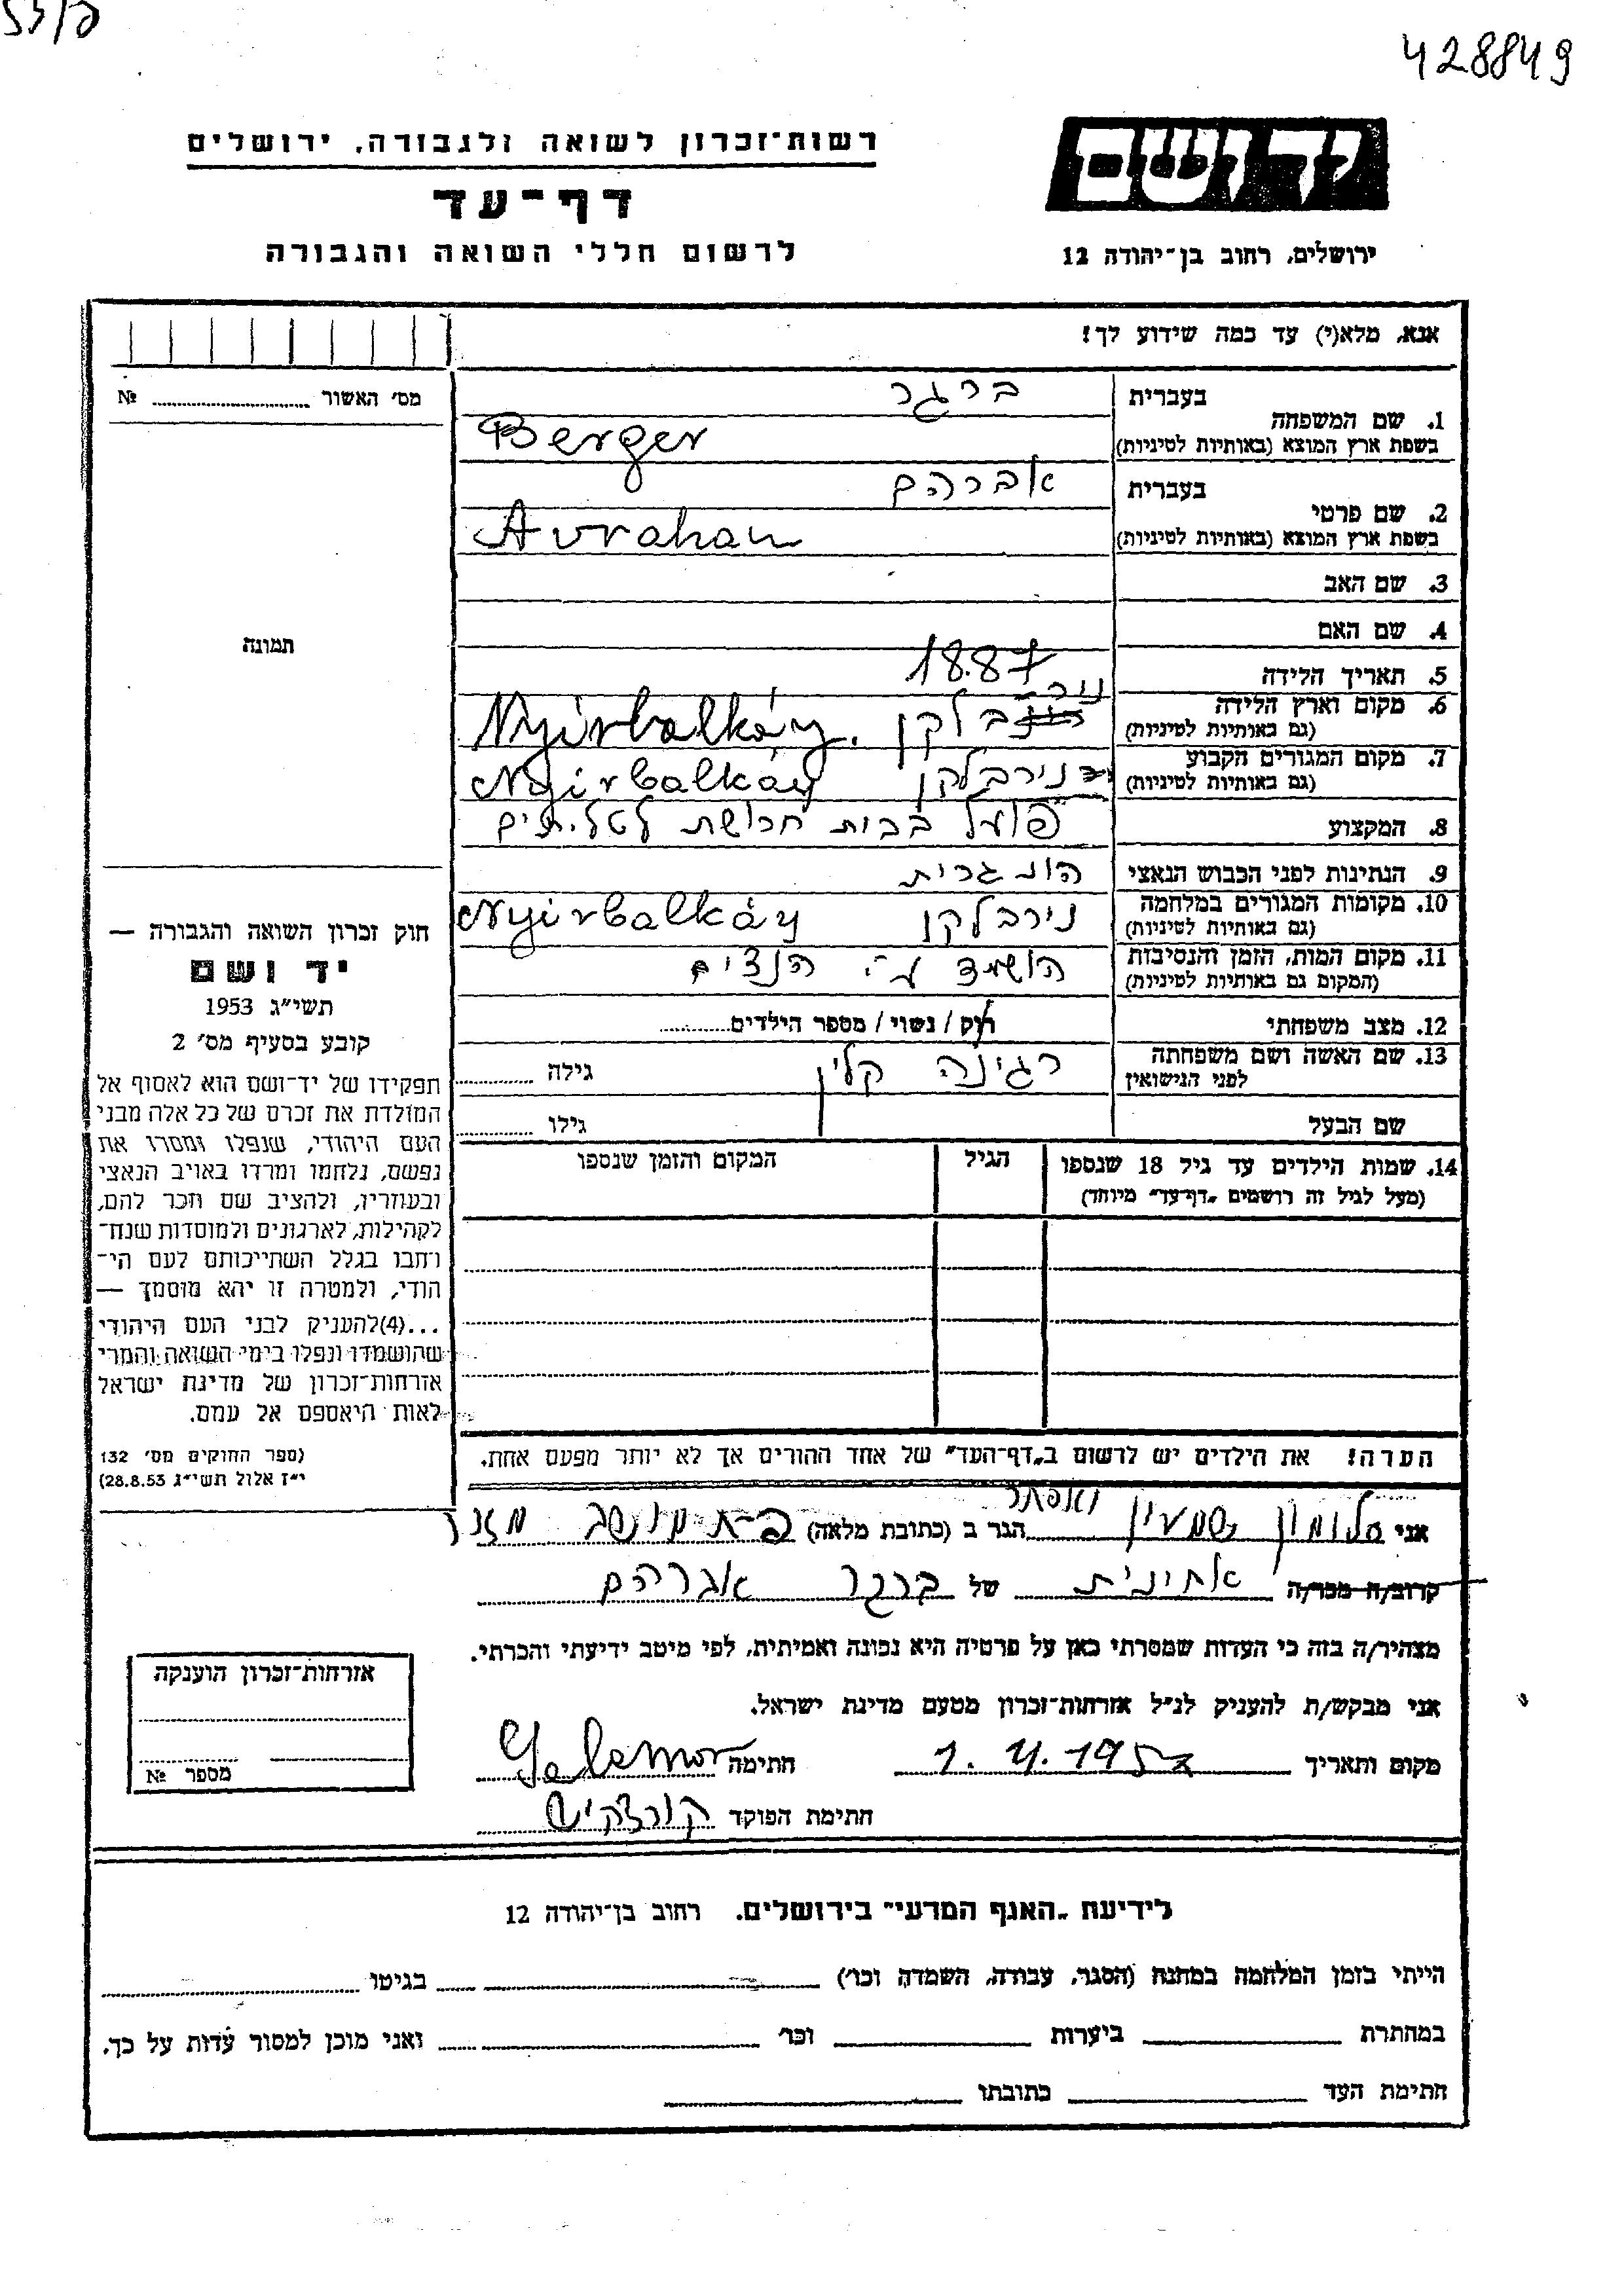 428849
יד ושם
ירושלים, רחוב בן־יהודה 12
רשות־זכרון לשואה ולגבורה, ירושלים
דף־עד
לרשום חללי השואה והגבורה
אנא, מלא(י) עד כמה שידוע לך!
מס׳ האשור № 
תמונה
1. שם המשפחה
בעברית ברגר
בשפת ארץ המוצא (באותיות לטיניות) Berger
2. שם פרטי
בעברית אברהם
בשפת ארץ המוצא (באותיות לטיניות) Avraham
3. שם האב
4. שם האם
5. תאריך הלידה 1887
6. מקום וארץ הלידה
(גם באותיות לטיניות) נירבלקן Nyírbalkáy.
7. מקום המגורים הקבוע
(גם באותיות לטיניות) נירבלקן Nyírbalkáy
8. המקצוע פועל בבית חרושת לטליתים
9. הנתינות לפני הכבוש הנאצי הונגרית
10. מקומות המגורים במלחמה
(גם באותיות לטיניות) נירבלקן Nyírbalkáy
11. מקום המות, הזמן והנסיבות
(המקום גם באותיות לטיניות) הושמד ע״י הנצים
12. מצב משפחתי רוק / נשוי / מספר הילדים
13. שם האשה ושם משפחתה
לפני הנישואין רגינה קלין גילה
שם הבעל גילו
14. שמות הילדים עד גיל 18 שנספו
(מעל לגיל זה רושמים „דף־עד״ מיוחד)
הגיל
המקום והזמן שנספו
הערה! את הילדים יש לרשום ב„דף־העד״ של אחד ההורים אך לא יותר מפעם אחת.
חוק זכרון השואה והגבורה —
יד ושם
תשי״ג 1953
קובע בסעיף מס׳ 2
תפקידו של יד־ושם הוא לאסוף אל
המולדת את זכרם של כל אלה מבני
העם היהודי, שנפלו ומסרו את
נפשם, נלחמו ומרדו באויב הנאצי
ובעוזריו, ולהציב שם וזכר להם,
לקהילות, לארגונים ולמוסדות שנח־
רחבו בגלל השתייכותם לעם הי־
הודי, ולמטרה זו יהא מוסמך —
...(4)להעניק לבני העם היהודי
שהושמדו ונפלו בימי השואה והמרי
אזרחות־זכרון של מדינת ישראל
לאות היאספם אל עמם.
(ספר החוקים מס׳ 132
י״ז אלול תשי״ג 28.8.53)
אני סלומון שמעון ואסתר הגר ב (כתובת מלאה) מושב
קרוב/ה מכר/ה אחינית של ברגר אברהם
מצהיר/ה בזה כי העדות שמסרתי כאן על פרטיה היא נכונה ואמיתית, לפי מיטב ידיעתי והכרתי.
אני מבקש/ת להעניק לנ״ל אזרחות־זכרון מטעם מדינת ישראל.
מקום ותאריך 1.4.1957 חתימה
חתימת הפוקד
אזרחות־זכרון הוענקה
מספר №
לידיעת „האגף המדעי״ בירושלים. רחוב בן־יהודה 12
הייתי בזמן המלחמה במחנה (הסגר, עבודה, השמדה וכו׳) בגיטו
במחתרת ביערות וכו׳ ואני מוכן למסור עדות על כך.
חתימת העד כתובתו